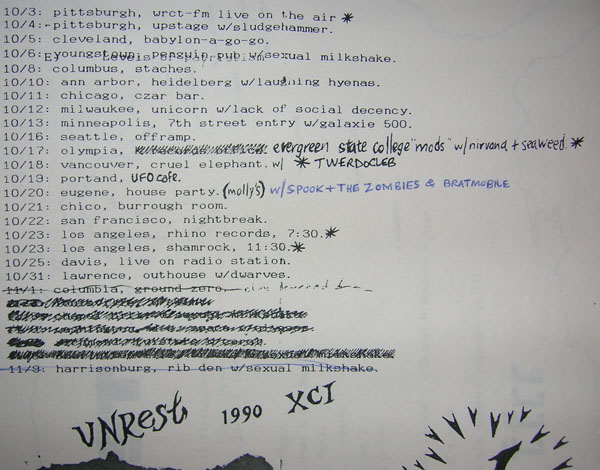 10/3: pittsburgh, wrct-fm live on the air *
10/4: pittsburgh, upstage w/sludgehammer.
10/5: cleveland, babylon-a-go-go.
10/6: youngstown, penguin pub w/sexual milkshake.
E) Levels of
10/8: columbus, staches.
10/10: ann arbor, heidelberg w/laughing hyenas.
10/11: chicago, czar bar.
10/12: milwaukee, unicorn w/lack of social decency.
10/13: minneapolis, 7th street entry w/galaxie 500.
10/16: seattle, offramp.
10/17: olympia, evergreen state college "mods" w/nirvana + seaweed. *
10/18: vancouver, cruel elephant. w/ * TWERDOCLEB
10/19: portand, UFO cafe.
10/20: eugene, house party. (molly's) w/SPOOK + THE ZOMBIES & BRATMOBILE
10/21: chico, burrough room.
10/22: san francisco, nightbreak.
10/23: los angeles, rhino records, 7:30. *
10/23: los angeles, shamrock, 11:30. *
10/25: davis, live on radio station.
10/31: lawrence, outhouse w/dwarves.
11/1: columbia, ground zero.
11/9: harrisonburg, rib den w/sexual milkshake.
UNRest 1990 XCI